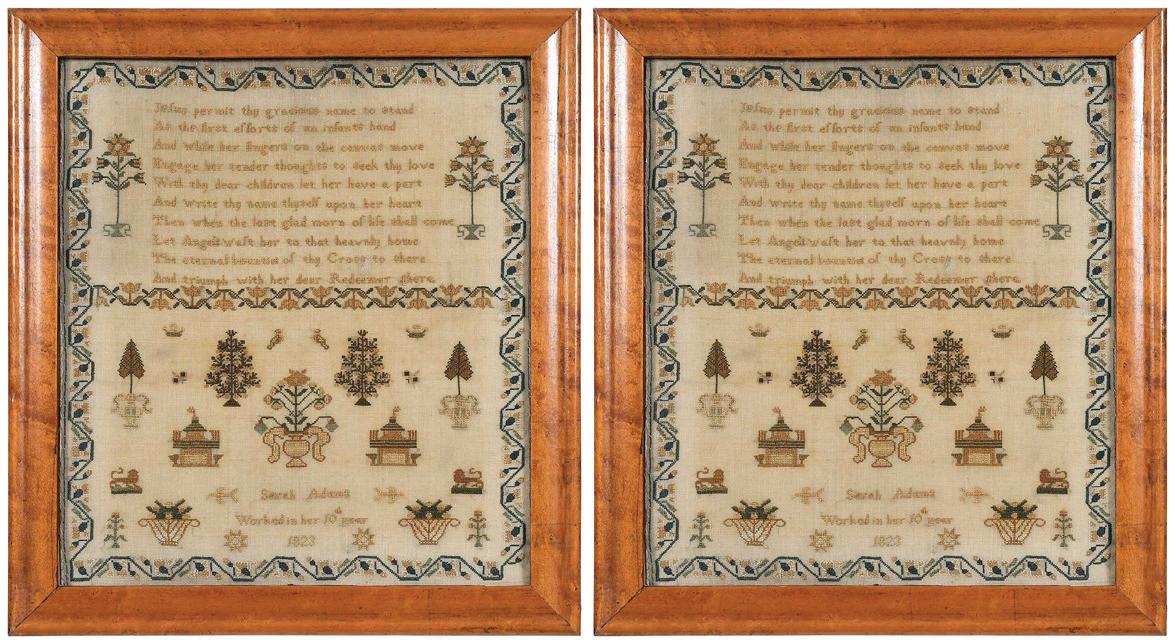 Jesus permit thy gracious name to stand
As the first efforts of an infants hand
And while her fingers on the canvas move
Engage her tender thoughts to seek thy love
With thy dear children let her have a part
And write thy name thyself upon her heart
Then when the last glad morn of life shall come
Let Angels waft her to that heavnly home
The eternal of thy Cross to share
And triumph with her dear Redeemer there
Sarah Adams
Worked in her 10th year
1823
Jesus permit thy gracious name to stand
As the first efforts of an infants hand
And while her fingers on the canvas move
Engage her tender thoughts to seek thy love
With thy dear children let her have a part
And write thy name thyself upon her heart
Then when the last glad morn of life shall come
Let Angels waft her to that heavnly home
The eternal of thy Cross to share
And triumph with her dear Redeemer there
Sarah Adams
Worked in her 10th year
1823